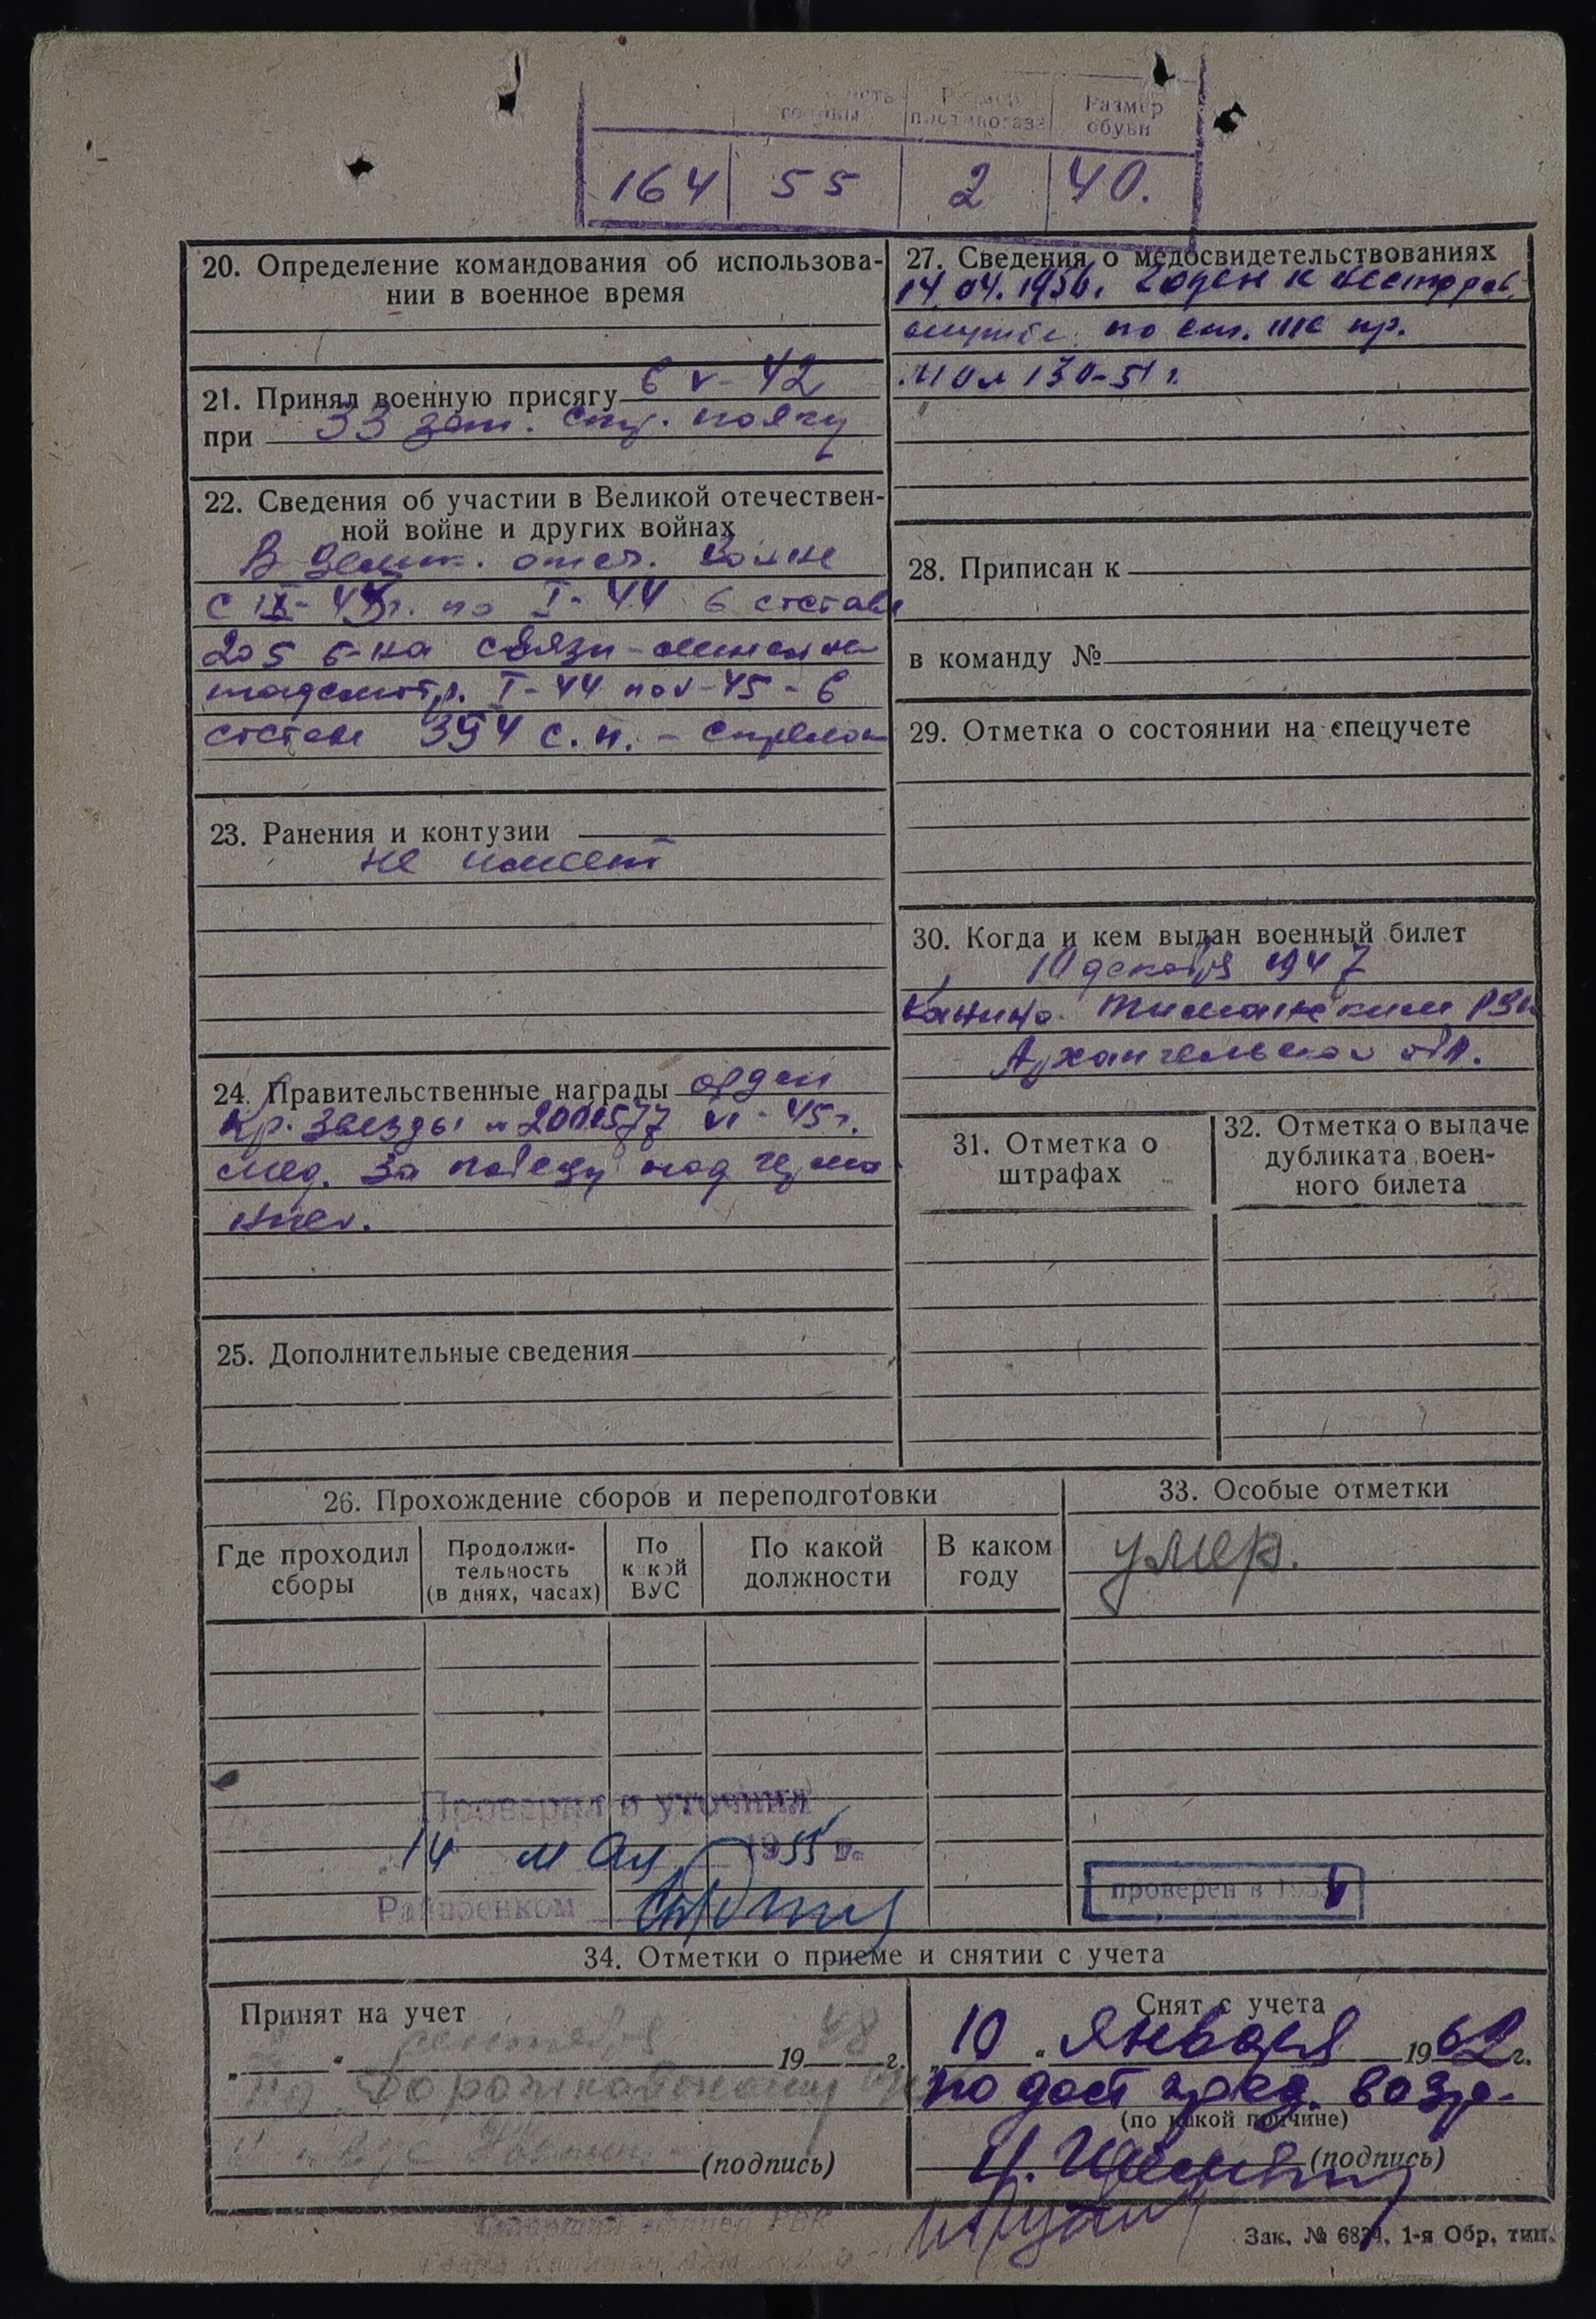 Размер Размер
головы противогаза обуви
164 55 2 40.
20. Определение командования об использова-
нии в военное время
21. Принял военную присягу 6 V-42
при 33 зап. стр. полку
22. Сведения об участии в Великой отечествен-
ной войне и других войнах
В Велик. отеч. войне
с IX-43г. по I-44 в составе
205 б-на связи-линейн.
надсмотр. I-44 по V-45-в
составе 394 с.п. - стрелок
23. Ранения и контузии
не имеет
24. Правительственные награды орден
Кр. Звезды VI-45г.
мед. За победу над Герма
нией.
25. Дополнительные сведения
26. Прохождение сборов и переподготовки
Где проходил
сборы
Продолжи-
тельность
(в днях, часах)
По
какой
ВУС
По какой
должности
В каком
году
Проверил и уточнил
14 мая 1955 г.
Райвоенком
27. Сведения о медосвидетельствованиях
14.04.1956. Годен к нестроев.
службе по ст. IIIс пр.
МО № 130-51г.
28. Приписан к
в команду №
29. Отметка о состоянии на спецучете
30. Когда и кем выдан военный билет
10 декабря 1947
Канино-Тиманским РВК
Архангельской обл.
31. Отметка о
штрафах
32. Отметка о выдаче
дубликата воен-
ного билета
33. Особые отметки
умер.
проверен в 195
34. Отметки о приеме и снятии с учета
Принят на учет
„ “ сентября 1948 г.
(подпись)
Снят с учета
„10“ Января 1962 г.
по дост пред. возр.
(по какой причине)
(подпись)
Зак. № 6874. 1-я Обр. тип.